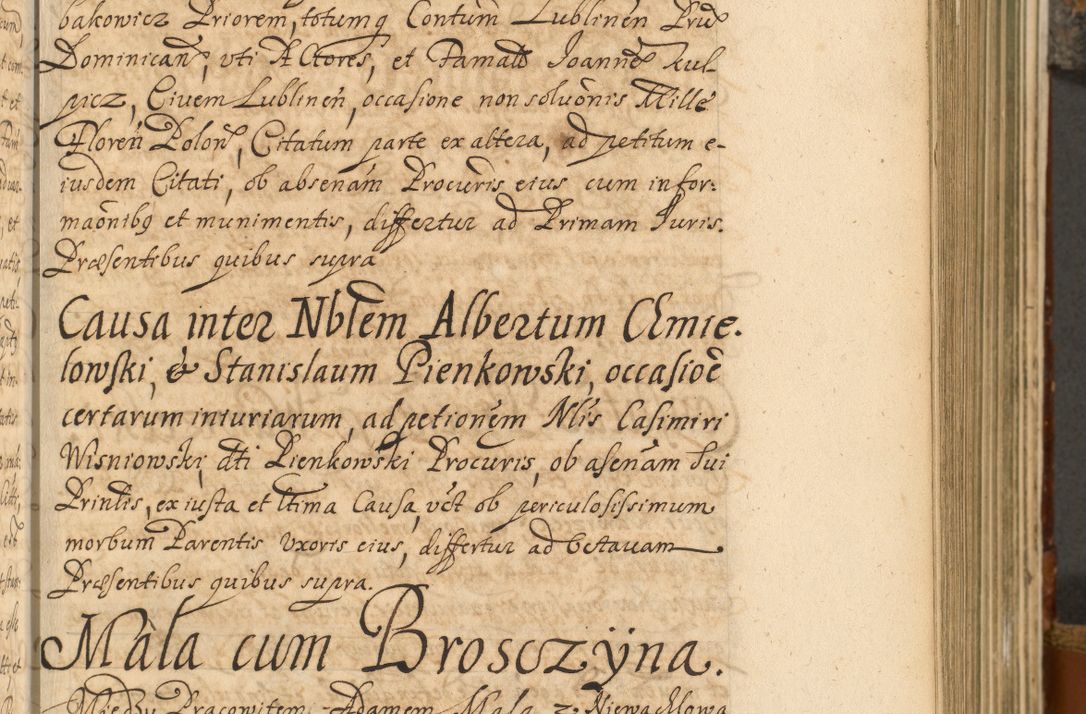 bakowicz Priorem, totumq Contum Lublinen Prud
Dominican, vti Actores, et Famatt Joannē Kul-
picz, Civem Lublinen, occasione non solvonis Mille
Floren Polon, Citatum parte ex altera, ad petitum e-
iusdem Citati, ob absenam Procuris eius cum infor:
maonibq et munimentis, differtur ad Primam Juris.
Præsentibus quibus supra
Causa inter Nblem Albertum Chmie-
lowski, & Stanislaum Pienkowski, occasioē
certarum iniuriarum, ad petionem Nlis Casimiri
Wisniowski, dti Pienkowski Procuris, ob asenam sui
Prinlis, ex iusta et ltima Causa, vct ob periculosissimum
morbum Parentis vxoris eius, differtur ad octauam
Præsentibus quibus supra.
Mala cum Brosczÿna.
Między Pracowitem Adamem Mala z Niewachlowa